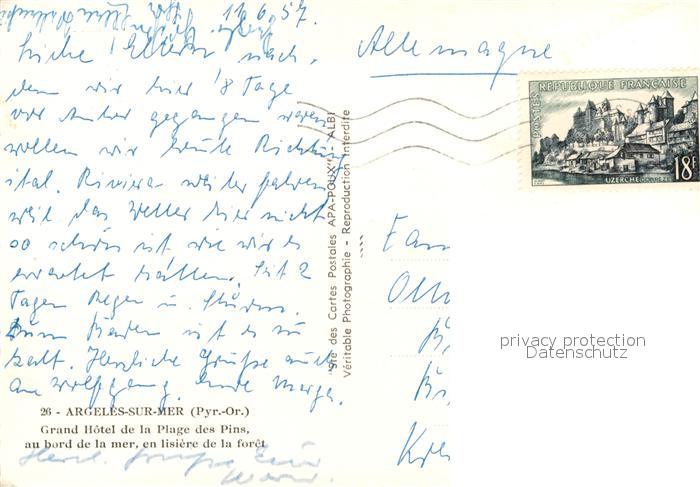 11.6.57.
Liebe Eltern nach
dem wir hier 8 Tage
vor Anker gegangen waren
wollen wir heute Richtung
ital. Riviera weiter fahren
weil das Wetter hier nicht
so schön ist wie wir es
erwartet hatten. Seit 2
Tagen Regen u. Sturm.
Zum Baden ist es zu
kalt. Herzliche Grüße auch
an Wolfgang. Eure Marga.
26 - ARGELÈS-SUR-MER (Pyr.-Or.)
Grand Hôtel de la Plage des Pins,
au bord de la mer, en lisière de la forêt
Herzl. Grüße Euer
"Sté des Cartes Postales APA-POUX" - ALBI
Véritable Photographie - Reproduction Interdite
Allemagne
REPUBLIQUE FRANÇAISE
POSTES
18F
UZERCHE CORRÈZE
Fam
privacy protection
Datenschutz